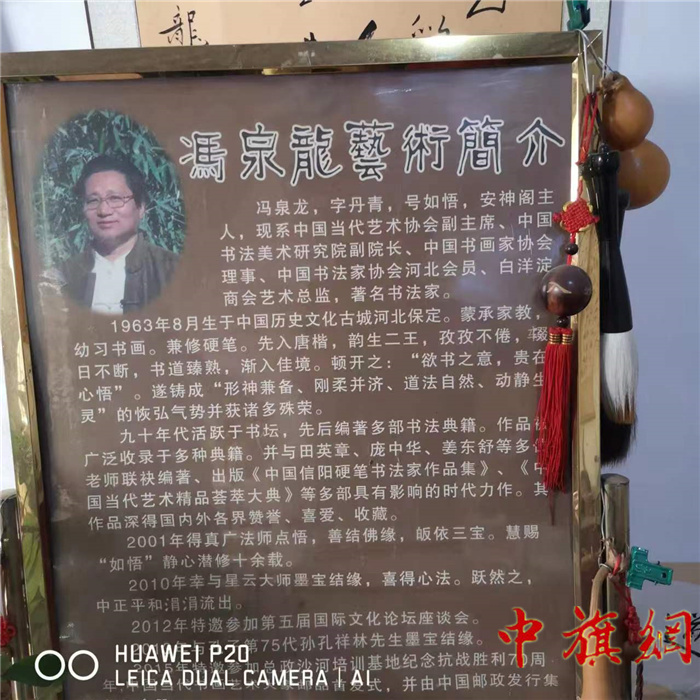 龍
馮泉龍藝術簡介
冯泉龙，字丹青，号如悟，安神阁主
人，现系中国当代艺术协会副主席、中国
书法美术研究院副院长、中国书画家协会
理事、中国书法家协会河北会员、白洋淀
商会艺术总监，著名书法家。
1963年8月生于中国历史文化古城河北保定。蒙承家教，
幼习书画。兼修硬笔。先入唐楷，韵生二王，孜孜不倦，
日不断，书道臻熟，渐入佳境。顿开之：“欲书之意，贵在
心悟”。遂铸成“形神兼备、刚柔并济、道法自然、动静生
灵”的恢弘气势并获诸多殊荣。
九十年代活跃于书坛，先后编著多部书法典籍。作品
广泛收录于多种典籍。并与田英章、庞中华、姜东舒等多
老师联袂编著、出版《中国信阳硬笔书法家作品集》、《中
国当代艺术精品荟萃大典》等多部具有影响的时代力作。其
作品深得国内外各界赞誉、喜爱、收藏。
2001年得真广法师点悟，善结佛缘，皈依三宝。慧赐
“如悟”静心潜修十余载。
2010年幸与星云大师墨宝结缘，喜得心法。跃然之，
中正平和涓涓流出。
2012年特邀参加第五届国际文化论坛座谈会。
第75代孙孔祥林先生墨宝结缘。
2015年特邀参加总政沙河培训基地纪念抗战胜利70周
年，中国当代书画艺术 首发式，并由中国邮政发行集
中旗網
HUAWEI P20
LEICA DUAL CAMERA | AI